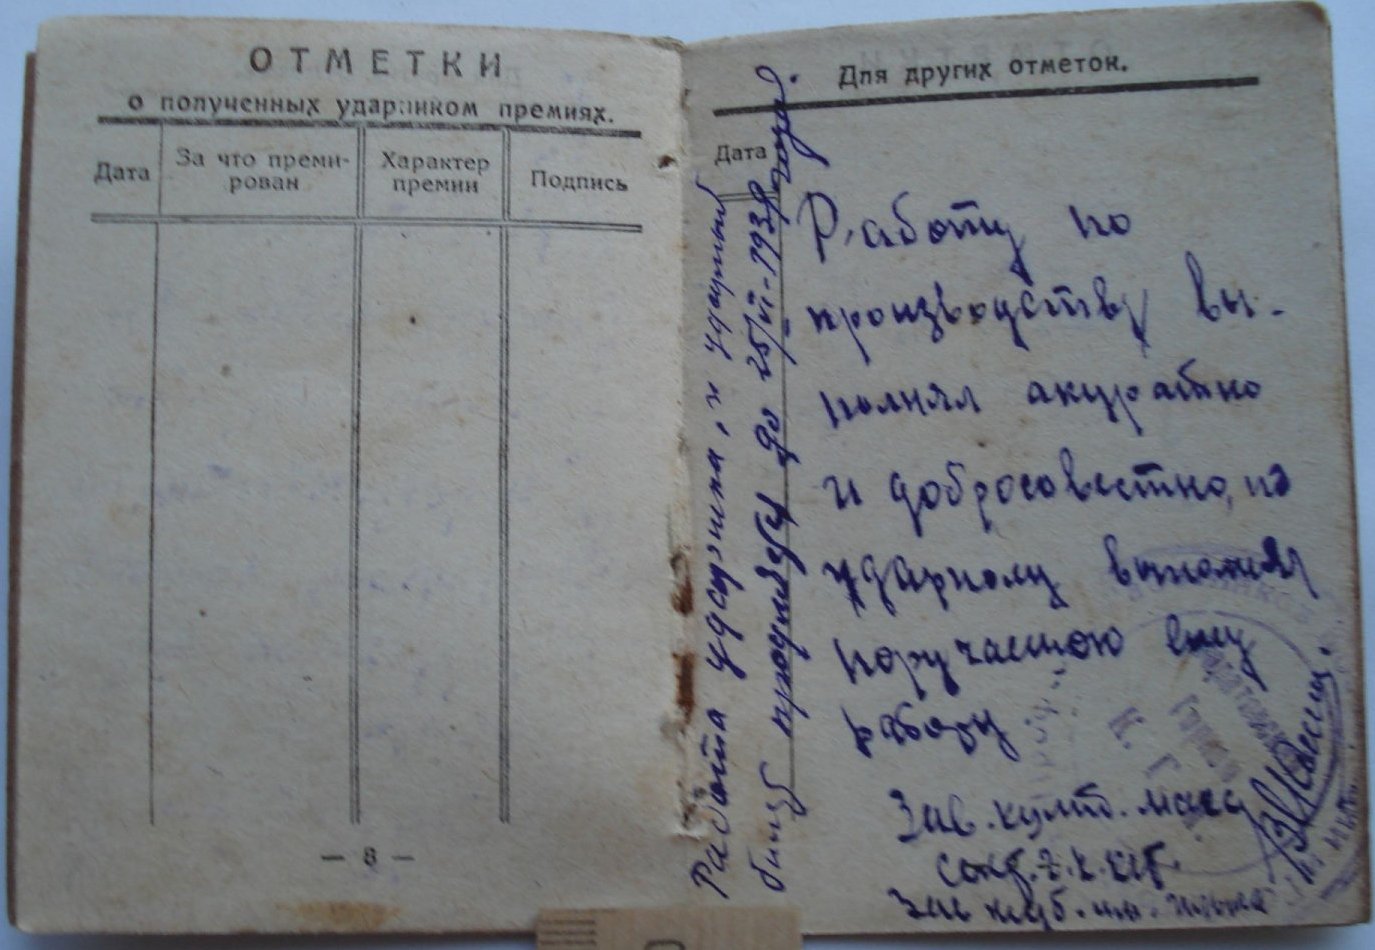 ОТМЕТКИ
о полученных ударником премиях.
Дата
За что преми-
рован
Характер
премии
Подпись
— 8 —
Для других отметок.
Дата
Работу по
производству вы-
полнял акуратно
и добросовестно, по
ударному выполнял
порученною ему
работу
Зав. культ. масс
Зав клуб. им. Ильича
Работа ударника, и ударный
билет продляется до 25/VI-1932 года.